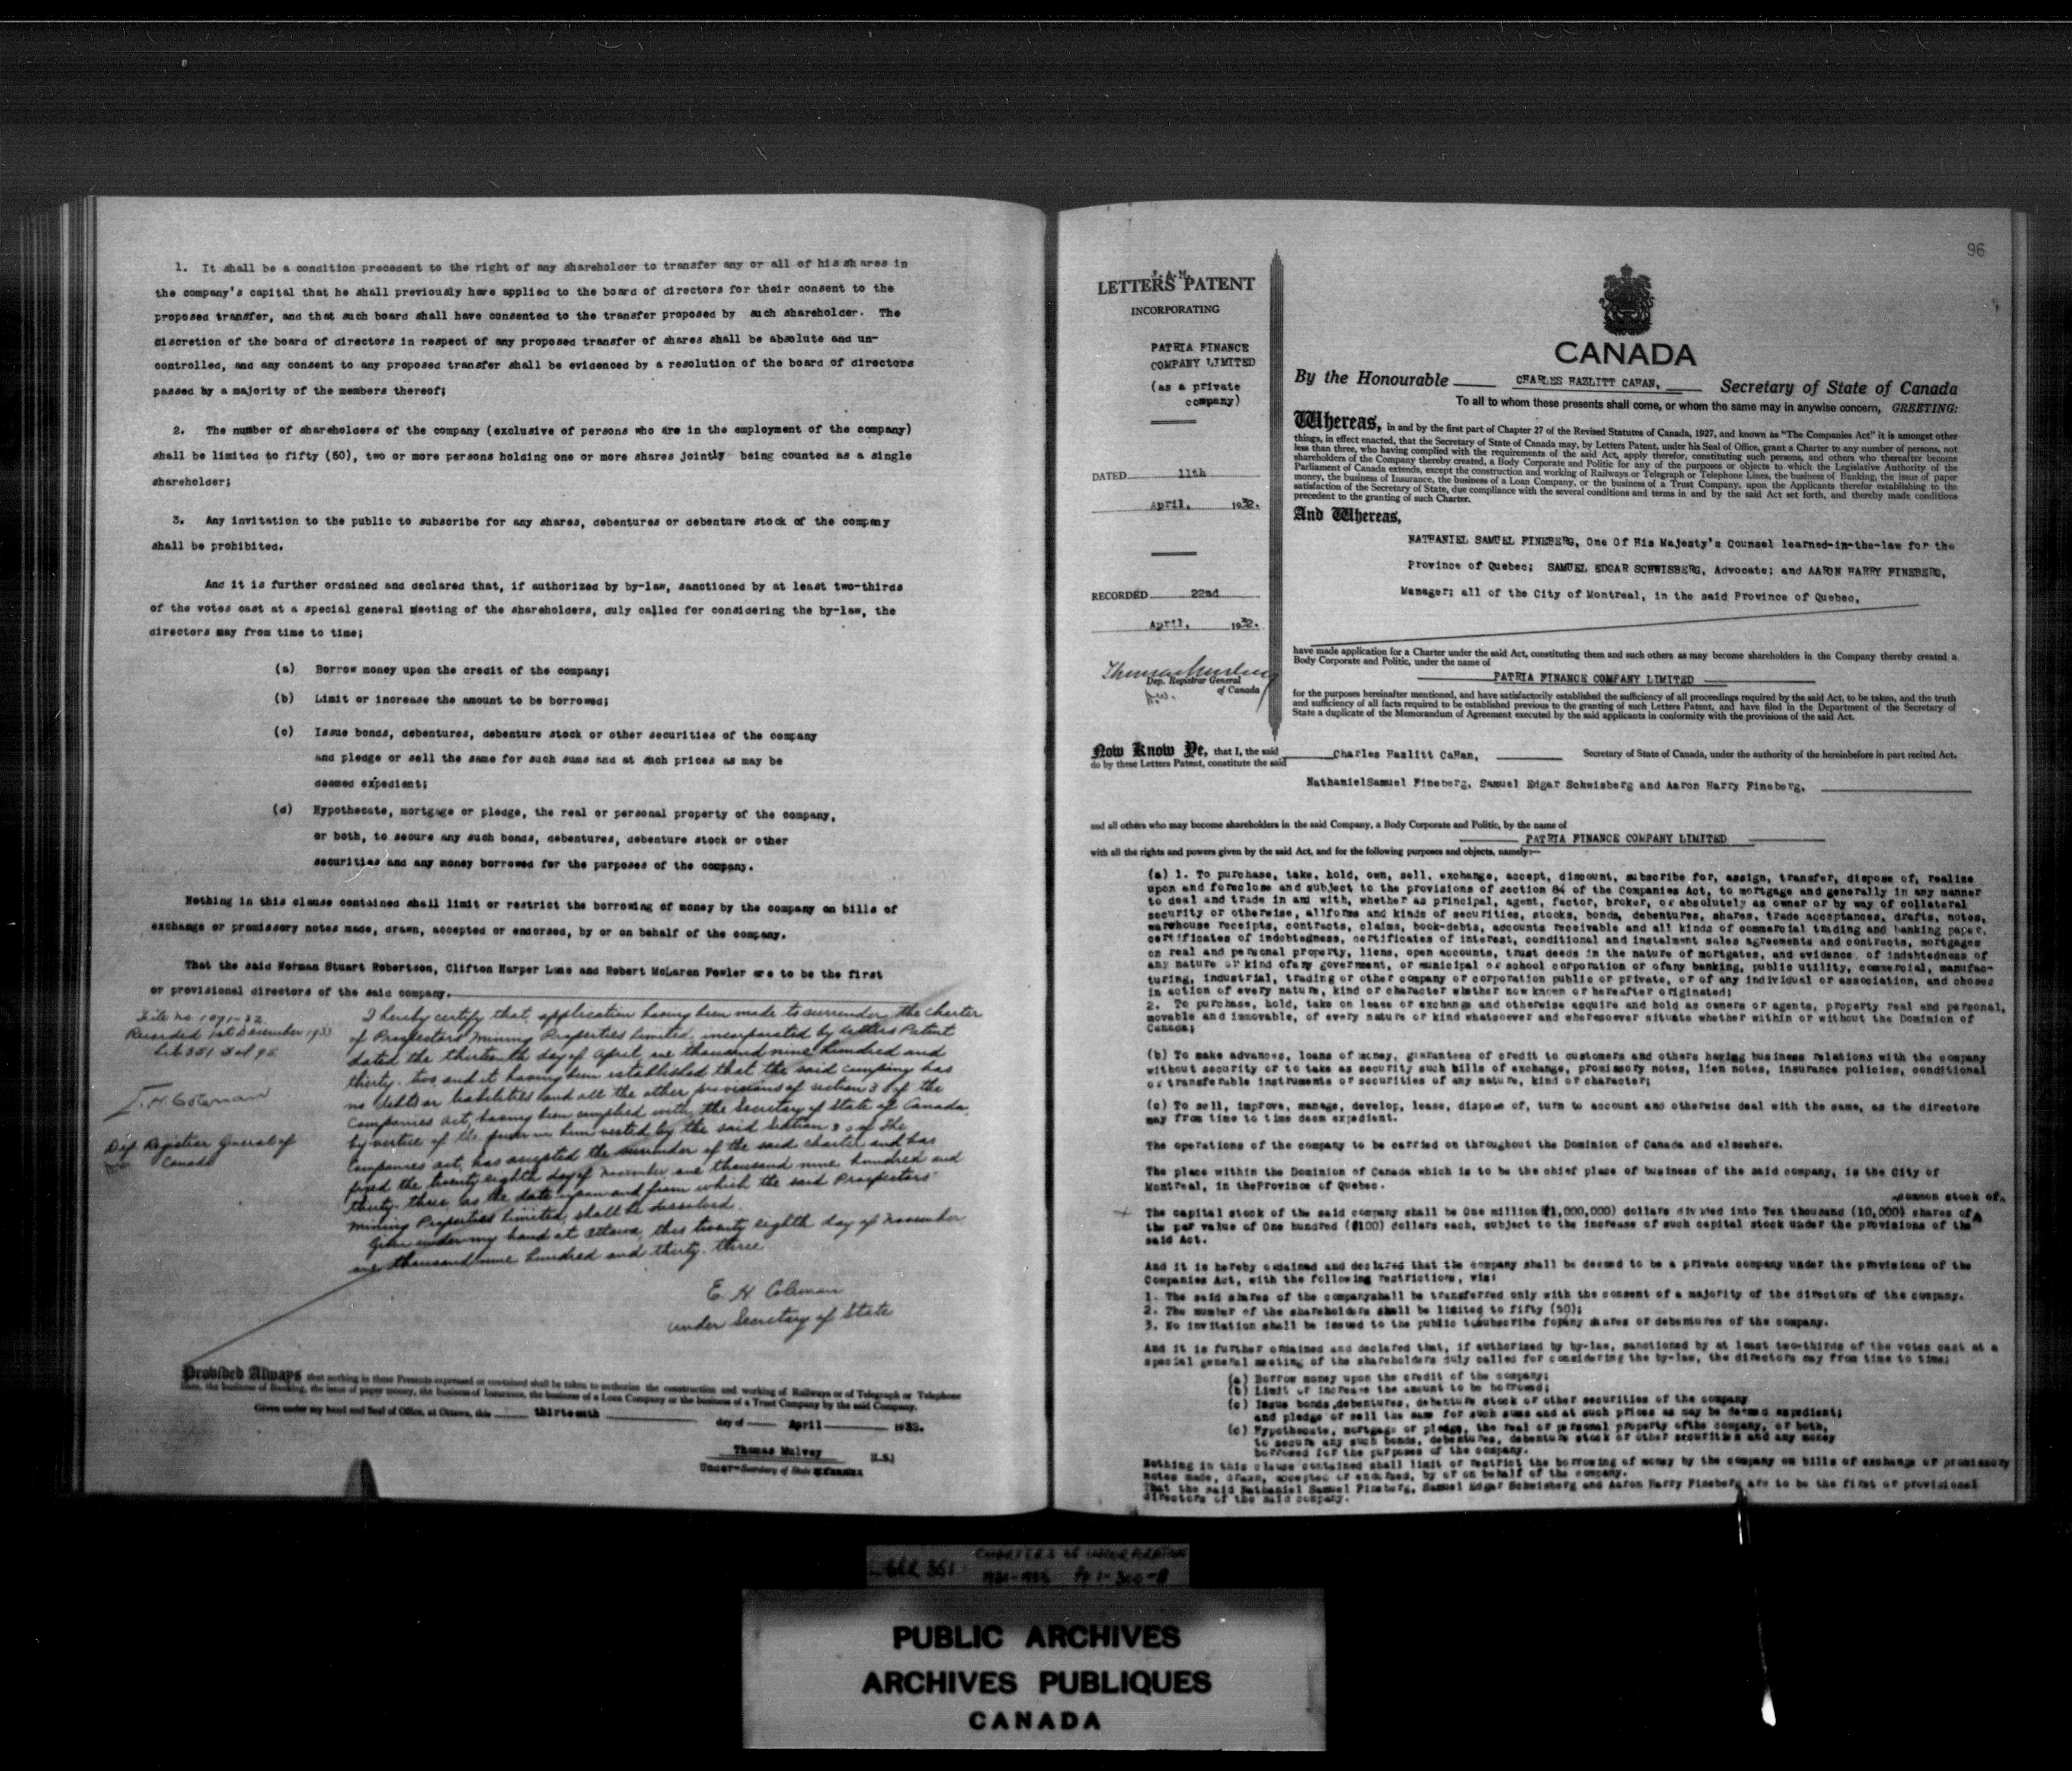 1. It shall be a condition precedent to the right of any shareholder to transfer any or all of his shares in
the company's capital that he shall previously have applied to the board of directors for their consent to the
proposed transfer, and that such board shall have consented to the transfer proposed by such shareholder. The
discretion of the board of directors in respect of any proposed transfer of shares shall be absolute and un-
controlled, and any consent to any proposed transfer shall be evidenced by a resolution of the board of directors
passed by a majority of the members thereof;
2. The number of shareholders of the company (exclusive of persons who are in the employment of the company)
shall be limited to fifty (50), two or more persons holding one or more shares jointly being counted as a single
shareholder;
3. Any invitation to the public to subscribe for any shares, debentures or debenture stock of the company
shall be prohibited.
And it is further ordained and declared that, if authorized by by-law, sanctioned by at least two-thirds
of the votes cast at a special general meeting of the shareholders, duly called for considering the by-law, the
directors may from time to time;
(a) Borrow money upon the credit of the company;
(b) Limit or increase the amount to be borrowed;
(c) Issue bonds, debentures, debenture stock or other securities of the company
and pledge or sell the same for such sums and at such prices as may be
deemed expedient;
(d) Hypothecate, mortgage or pledge, the real or personal property of the company,
or both, to secure any such bonds, debentures, debenture stock or other
securities and any money borrowed for the purposes of the company.
Nothing in this clause contained shall limit or restrict the borrowing of money by the company on bills of
exchange or promissory notes made, drawn, accepted or endorsed, by or on behalf of the company.
That the said Norman Stuart Robertson, Clifton Harper Lane and Robert McLaren Fowler are to be the first
or provisional directors of the said company.
File no 1091-32
Recorded 1st December 1933
Lib 351 Fol 95
Dep. Registrar General of
Canada
I hereby certify that, application having been made to surrender the charter
of Prospectors Mining Properties Limited, incorporated by Letters Patent
dated the thirteenth day of April, one thousand nine hundred and
thirty-two and it having been established that the said company has
no debts or liabilities and all the other provisions of section 30 of the
Companies Act, having been complied with, the Secretary of State of Canada,
by vertue of the power in him vested by the said Section 30 of the
Companies Act, has accepted the surrender of the said charter and has
fixed the twenty eighth day of November, one thousand nine hundred and
thirty-three as the date upon and from which the said Prospectors
Mining Properties Limited, shall be dissolved.
Given under my hand at Ottawa, this twenty eighth day of November
one thousand nine hundred and thirty-three
E. H. Coleman
under Secretary of State
Provided Always that nothing in these Presents expressed or contained shall be taken to authorize the construction and working of Railways or of Telegraph or Telephone
lines, the business of Banking, the issue of paper money, the business of Insurance, the business of a Loan Company or the business of a Trust Company by the said Company.
Given under my hand and Seal of Office, at Ottawa, this thirteenth day of April 1932.
Thomas Mulvey [L.S.]
Under-Secretary of State
96
J.A.M.
LETTERS PATENT
INCORPORATING
PATRIA FINANCE
COMPANY LIMITED
(as a private
company)
DATED 11th
April, 1932.
RECORDED 22nd
April, 1932.
Dep. Registrar General
of Canada
CANADA
By the Honourable CHARLES HAZLITT CAHAN, Secretary of State of Canada
To all to whom these presents shall come, or whom the same may in anywise concern, GREETING:
Whereas, in and by the first part of Chapter 27 of the Revised Statutes of Canada, 1927, and known as "The Companies Act" it is amongst other
things, in effect enacted, that the Secretary of State of Canada may, by Letters Patent, under his Seal of Office, grant a Charter to any number of persons, not
less than three, who having complied with the requirements of the said Act, apply therefor, constituting such persons, and others who thereafter become
shareholders of the Company thereby created, a Body Corporate and Politic for any of the purposes or objects to which the Legislative Authority of the
Parliament of Canada extends, except the construction and working of Railways or Telegraph or Telephone Lines, the business of Banking, the issue of paper
money, the business of Insurance, the business of a Loan Company, or the business of a Trust Company, upon the Applicants therefor establishing to the
satisfaction of the Secretary of State, due compliance with the several conditions and terms in and by the said Act set forth, and thereby made conditions
precedent to the granting of such Charter.
And Whereas,
NATHANIEL SAMUEL FINEBERG, One Of His Majesty's Counsel learned-in-the-law for the
Province of Quebec; SAMUEL EDGAR SCHWISBERG, Advocate; and AARON HARRY FINEBERG,
Manager; all of the City of Montreal, in the said Province of Quebec,
have made application for a Charter under the said Act, constituting them and such others as may become shareholders in the Company thereby created a
Body Corporate and Politic, under the name of
PATRIA FINANCE COMPANY LIMITED
for the purposes hereinafter mentioned, and have satisfactorily established the sufficiency of all proceedings required by the said Act, to be taken, and the truth
and sufficiency of all facts required to be established previous to the granting of such Letters Patent, and have filed in the Department of the Secretary of
State a duplicate of the Memorandum of Agreement executed by the said applicants in conformity with the provisions of the said Act.
Now Know Ye, that I, the said Charles Hazlitt CaHan, Secretary of State of Canada, under the authority of the hereinbefore in part recited Act.
do by these Letters Patent, constitute the said
NathanielSamuel Fineberg, Samuel Edgar Schwisberg and Aaron Harry Fineberg,
and all others who may become shareholders in the said Company, a Body Corporate and Politic, by the name of
PATRIA FINANCE COMPANY LIMITED
with all the rights and powers given by the said Act, and for the following purposes and objects, namely:—
(a) 1. To purchase, take, hold, own, sell, exchange, accept, discount, subscribe for, assign, transfer, dispose of, realize
upon and foreclose and subject to the provisions of section 84 of the Companies Act, to mortgage and generally in any manner
to deal and trade in and with, whether as principal, agent, factor, broker, or absolutely as owner or by way of collateral
security or otherwise, allforms and kinds of securities, stocks, bonds, debentures, shares, trade acceptances, drafts, notes,
warehouse receipts, contracts, claims, book-debts, accounts receivable and all kinds of commercial trading and banking paper,
certificates of indebtedness, certificates of interest, conditional and instalment sales agreements and contracts, mortgages
on real and personal property, liens, open accounts, trust deeds in the nature of mortgates, and evidence of indebtedness of
any nature or kind ofany government, or municipal or school corporation or ofany banking, public utility, commercial, manufac-
turing, industrial, trading or other company or corporation public or private, or of any individual or association, and choses
in action of every nature, kind or character whether now known or hereafter originated;
2. To purchase, hold, take on lease or exchange and otherwise acquire and hold as owners or agents, property real and personal,
movable and immovable, of every nature or kind whatsoever and wheresoever situate whether within or without the Dominion of
Canada;
(b) To make advances, loans of money, guarantees of credit to customers and others having business relations with the company
without security or to take as security such bills of exchange, promissory notes, lien notes, insurance policies, conditional
or transferable instruments or securities of any nature, kind or character;
(c) To sell, improve, manage, develop, lease, dispose of, turn to account and otherwise deal with the same, as the directors
may from time to time deem expedient.
The operations of the company to be carried on throughout the Dominion of Canada and elsewhere.
The place within the Dominion of Canada which is to be the chief place of business of the said company, is the City of
Montreal, in theProvince of Quebec.
common stock of
The capital stock of the said company shall be One million ($1,000,000) dollars divided into Ten thousand (10,000) shares of
the par value of One hundred ($100) dollars each, subject to the increase of such capital stock under the provisions of the
said Act.
And it is hereby ordained and declared that the company shall be deemed to be a private company under the provisions of the
Companies Act, with the following restrictions, viz:
1. The said shares of the companyshall be transferred only with the consent of a majority of the directors of the company.
2. The number of the shareholders shall be limited to fifty (50);
3. No invitation shall be issued to the public tosubscribe forany shares or debentures of the company.
And it is further ordained and declared that, if authorized by by-law, sanctioned by at least two-thirds of the votes cast at a
special general meeting of the shareholders duly called for considering the by-law, the directors may from time to time;
(a) Borrow money upon the credit of the company;
(b) Limit or increase the amount to be borrowed;
(c) Issue bonds, debentures, debenture stock or other securities of the company
and pledge or sell the same for such sums and at such prices as may be deemed expedient;
(d) Hypothecate, mortgage or pledge, the real or personal property ofthe company, or both,
to secure any such bonds, debentures, debenture stock or other securities and any money
borrowed for the purposes of the company.
Nothing in this clause contained shall limit or restrict the borrowing of money by the company on bills of exchange or promissory
notes made, drawn, accepted or endorsed, by or on behalf of the company.
That the said Nathaniel Samuel Fineberg, Samuel Edgar Schwisberg and Aaron Harry Fineberg are to be the first or provisional
directors of the said company.
LIBER 351 CHARTERS of INCORPORATION
PUBLIC ARCHIVES
ARCHIVES PUBLIQUES
CANADA